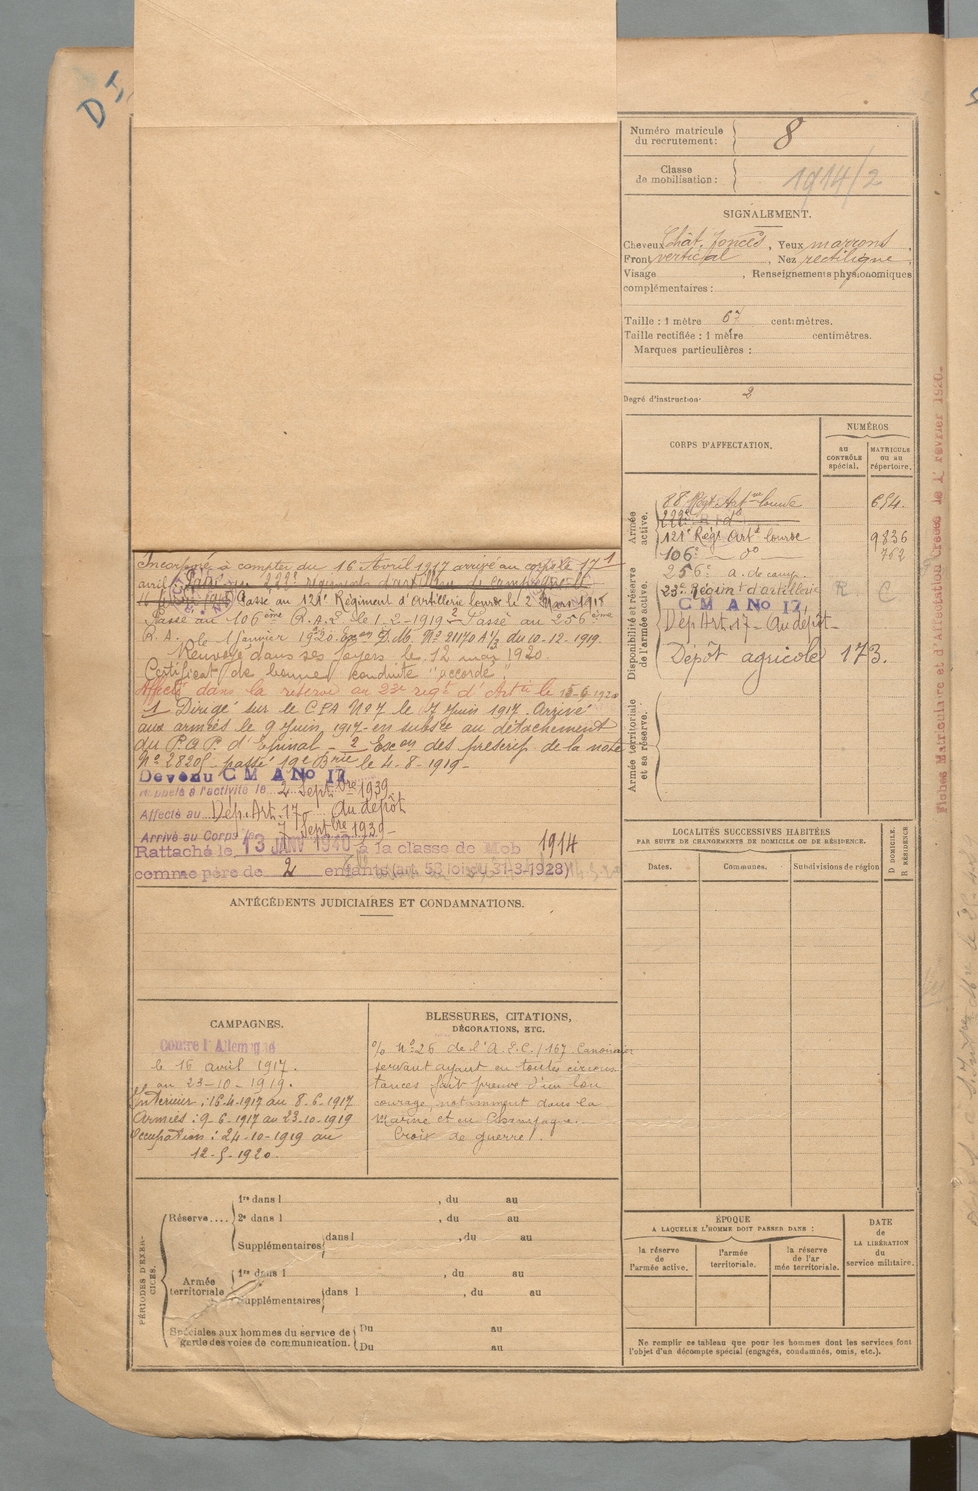 Numéro matricule du recrutement : 8
Classe de mobilisation : 1914/2
SIGNALEMENT.
Cheveux Chât. foncés, Yeux marrons,
Front vertical, Nez rectiligne,
Visage , Renseignements physionomiques
complémentaires :
Taille : 1 mètre 67 centimètres.
Taille rectifiée : 1 mètre centimètres.
Marques particulières :
Degré d'instruction 2
CORPS D'AFFECTATION.
NUMÉROS
au CONTRÔLE spécial.
MATRICULE ou au répertoire.
Armée active.
88e Régt Artie lourde 654.
222e R. d°
121e Régt Artie lourde 9836
106e d° 762
Disponibilité et réserve de l'armée active.
256e a. de camp.
23e Régiment d'artillerie R. C
C M A No 17
Dép Art. 17 - Au dépôt -
Dépôt agricole 173.
Armée territoriale et sa réserve.
Incorporé à compter du 16 Avril 1917 arrivé au corps le 17 1
avril Passé au 222e régiment d'artillerie de campagne le
Passé au 121e Régiment d'Artillerie lourde le 2 Mars 1918
Passé au 106ème R.A.L. le 1-2-1919 2 Passé au 256ème
R.A. le 1 Janvier 1920 Exon D.M. No 21170 A 1/3 du 10-12-1919.
Renvoyé dans ses foyers le 12 mai 1920
Certificat de bonne conduite "accordé"
Affecté dans la réserve au 23e régt d'Artie le 15-6-1920
1 Dirigé sur le CPA No 7 le 7 Juin 1917. Arrivé
aux armées le 9 Juin 1917 en subsce au détachement
du P.A.P. d'Epinal - 2 Exon des prescrip. de la note
No 2820 passé 19e Brie le 4-8-1919 -
Devenu C M A No 17
Rappelé à l'activité le 2 Septbre 1939
Affecté au Dép. Art. 17 du dépôt
Arrivé au Corps le 7 Septbre 1939 -
Rattaché le 13 JANV 1940 à la classe de Mob 1914
comme père de 2 enfants (art. 58 loi du 31-3-1928)
ANTÉCÉDENTS JUDICIAIRES ET CONDAMNATIONS.
CAMPAGNES.
Contre l'Allemagne
le 16 avril 1917.
au 23-10-1919.
Intérieur : 16-4-1917 au 8-6-1917
Armées : 9-6-1917 au 23-10-1919
Occupation : 24-10-1919 au
12-5-1920.
BLESSURES, CITATIONS,
DÉCORATIONS, ETC.
No 26 de l'A.L.C./167 Canonnier
servant ayant en toutes circons
tances fait preuve d'un bon
courage, notamment dans la
Marne et en Champagne.
Croix de guerre.
LOCALITÉS SUCCESSIVES HABITÉES
PAR SUITE DE CHANGEMENTS DE DOMICILE OU DE RÉSIDENCE.
Dates.
Communes.
Subdivisions de région
D DOMICILE.
R RÉSIDENCE
PÉRIODES D'EXERCICES.
Réserve....
1re dans l , du au
2e dans l , du au
Supplémentaires dans l , du au
Armée territoriale
1re dans l , du au
Supplémentaires dans l , du au
Spéciales aux hommes du service de garde des voies de communication.
Du au
Du au
ÉPOQUE
A LAQUELLE L'HOMME DOIT PASSER DANS :
la réserve de l'armée active.
l'armée territoriale.
la réserve de l'armée territoriale.
DATE de LA LIBÉRATION du service militaire.
Ne remplir ce tableau que pour les hommes dont les services font
l'objet d'un décompte spécial (engagés, condamnés, omis, etc.).
Fiches Matriculaire et d'Affectation Créées le 1r Février 1920.